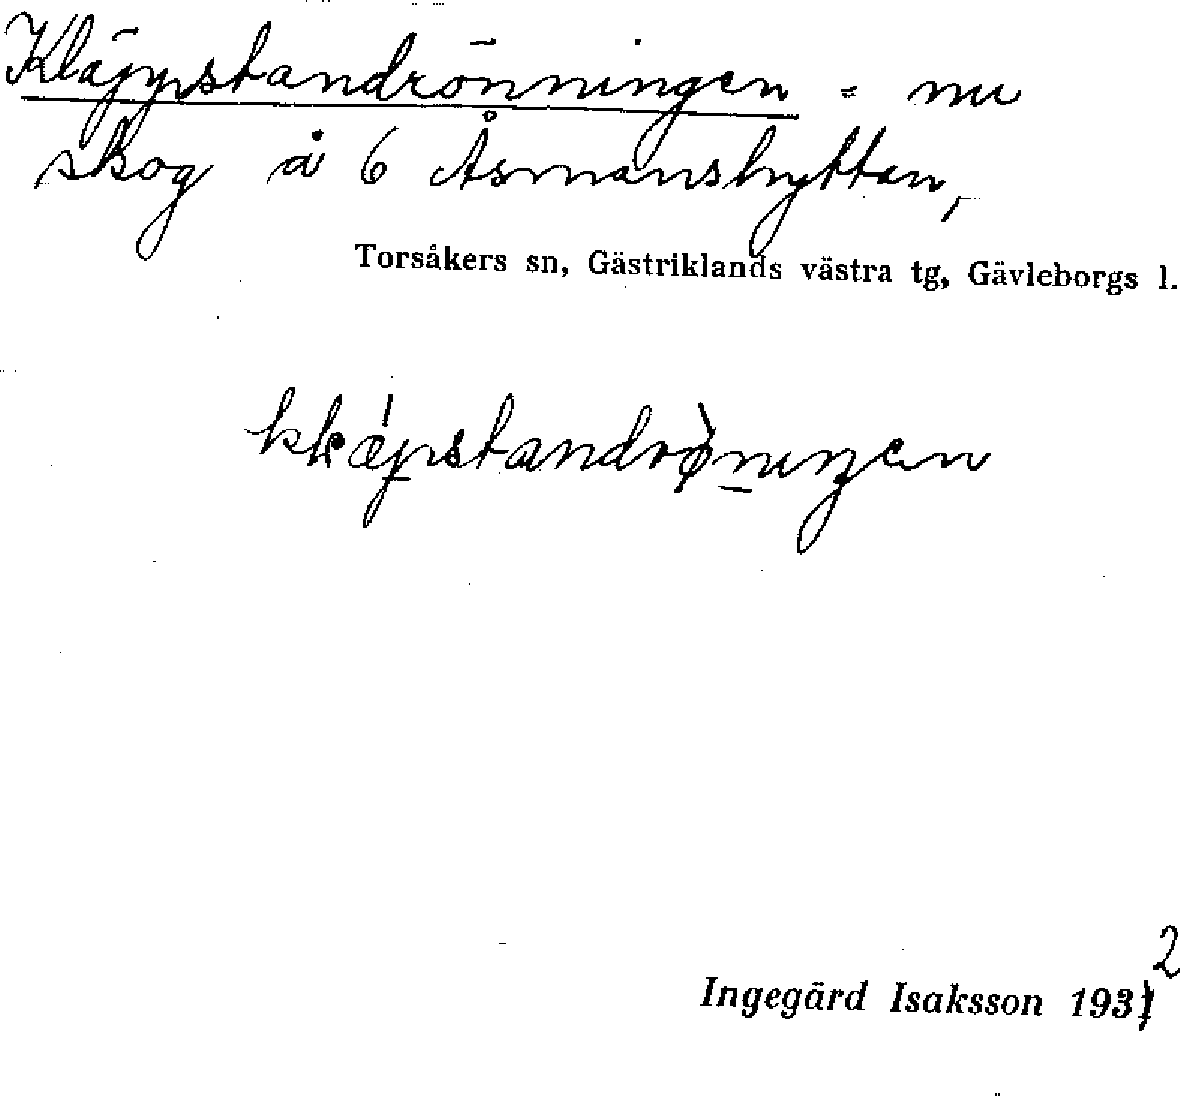 Kläppstandrönningen = nu
skog å 6 Åsmanshyttan,
Torsåkers sn, Gästriklands västra tg, Gävleborgs l.
Ingegärd Isaksson 1932